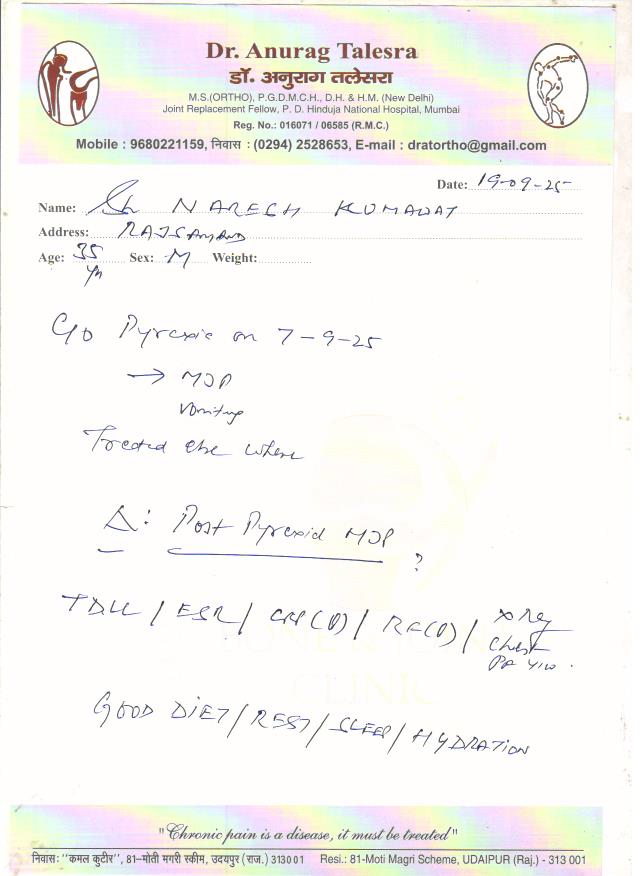 Dr. Anurag Talesra
डॉ. अनुराग तलेसरा
M.S.(ORTHO), P.G.D.M.C.H., D.H. & H.M. (New Delhi)
Joint Replacement Fellow, P. D. Hinduja National Hospital, Mumbai
Reg. No.: 016071 / 06585 (R.M.C.)
Mobile : 9680221159, निवास : (0294) 2528653, E-mail : dratortho@gmail.com
Date: 19-09-25
Name: Sh NARESH KUMAWAT
Address: RAJSAMAND
Age: 35 yr Sex: M Weight:
C/o Pyrexia on 7-9-25
→ MJP
Vomiting
Treated else where
Δ: Post Pyrexial MJP ?
TDLC / ESR / CRP(Q) / RF(Q) / X Ray
Chest
PA view.
GOOD DIET / REST / SLEEP / HYDRATION
"Chronic pain is a disease, it must be treated"
निवास: "कमल कुटीर", 81-मोती मगरी स्कीम, उदयपुर (राज.) 313001 Resi.: 81-Moti Magri Scheme, UDAIPUR (Raj.) - 313 001